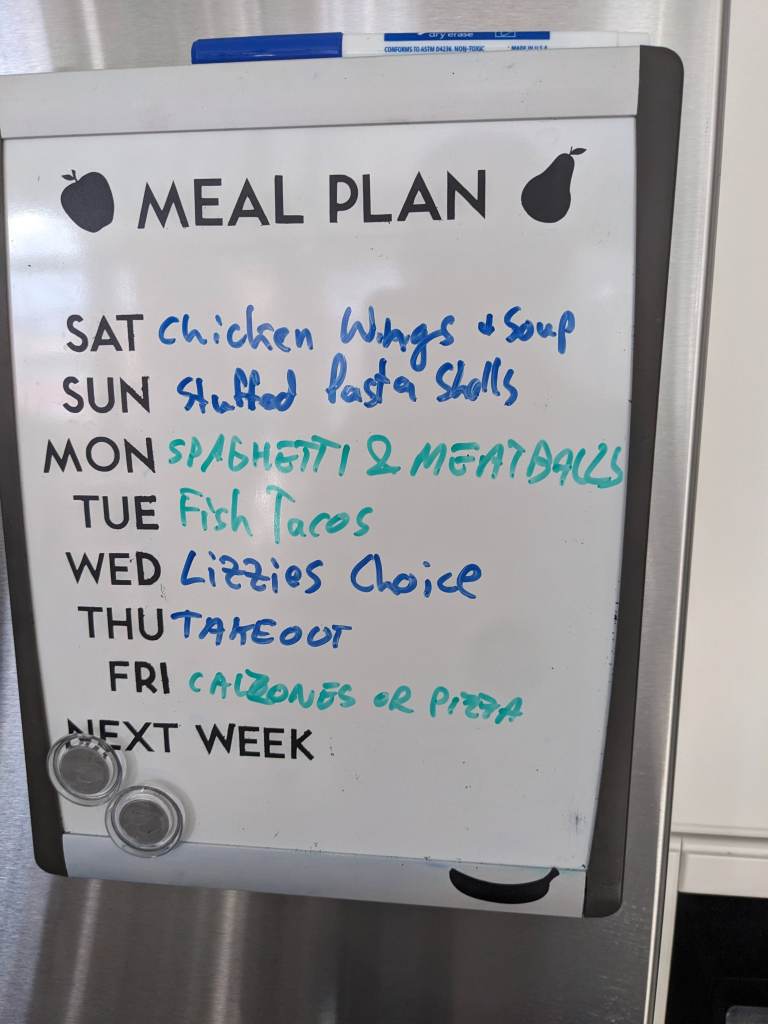 dry erase
CONFORMS TO ASTM D4236 NON-TOXIC MADE IN U.S.A
MEAL PLAN
SAT Chicken Wings & Soup
SUN Stuffed Pasta Shells
MON SPAGHETTI & MEATBALLS
TUE Fish Tacos
WED Lizzies Choice
THU TAKEOUT
FRI CALZONES OR PIZZA
NEXT WEEK